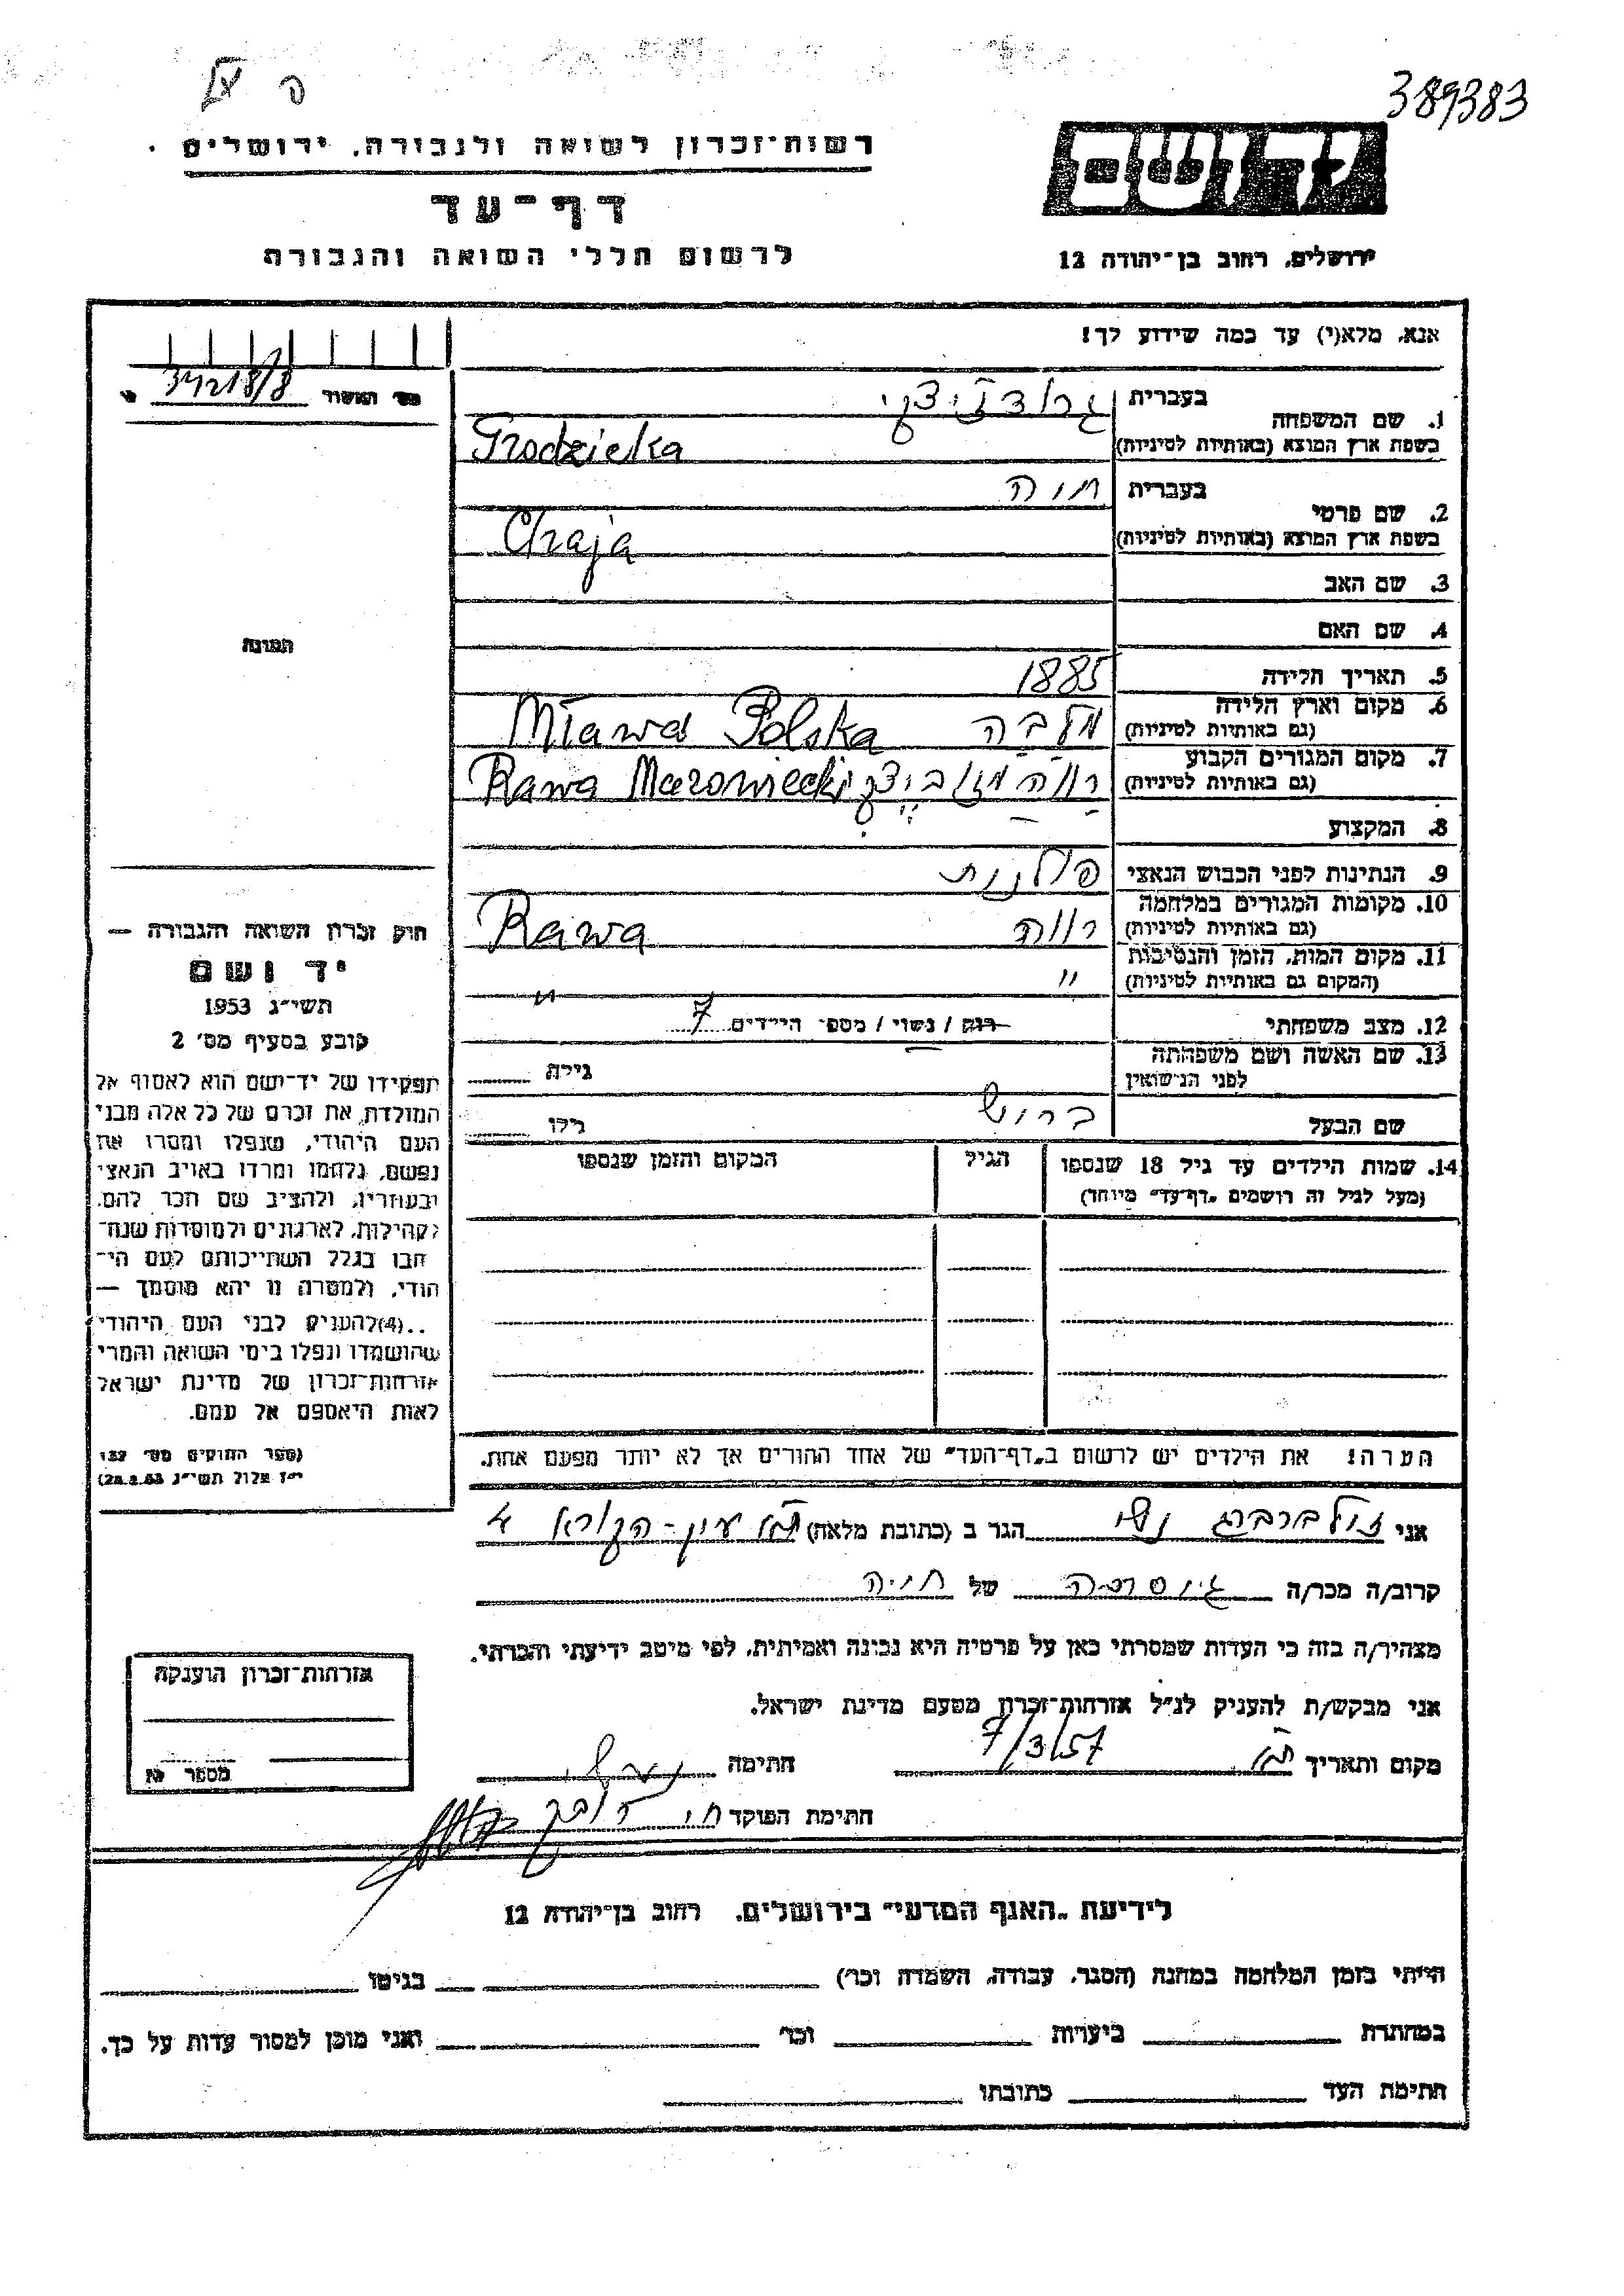 389383
יד ושם
רשות־זכרון לשואה ולגבורה, ירושלים
דף־עד
לרשום חללי השואה והגבורה
ירושלים, רחוב בן־יהודה 12
אנא, מלא(י) עד כמה שידוע לך!
34218/8
1. שם המשפחה
בעברית
בשפת ארץ המוצא (באותיות לטיניות) Grodzicka
2. שם פרטי
בעברית חוה
בשפת ארץ המוצא (באותיות לטיניות) Chaja
3. שם האב
4. שם האם
5. תאריך הלידה 1885
6. מקום וארץ הלידה
(גם באותיות לטיניות) Mława Polska
7. מקום המגורים הקבוע
(גם באותיות לטיניות) Rawa Mazowiecki
8. המקצוע
9. הנתינות לפני הכבוש הנאצי פולנית
10. מקומות המגורים במלחמה
(גם באותיות לטיניות) רווה Rawa
11. מקום המות, הזמן והנסיבות
(המקום גם באותיות לטיניות) " "
12. מצב משפחתי רוק / נשוי / מספר הילדים 7
13. שם האשה ושם משפחתה
לפני הנישואין גילה
שם הבעל ברוש גילו
14. שמות הילדים עד גיל 18 שנספו הגיל המקום והזמן שנספו
(מעל לגיל זה רושמים „דף־עד" מיוחד)
הערה! את הילדים יש לרשום ב„דף־העד" של אחד ההורים אך לא יותר מפעם אחת.
תמונה
חוק זכרון השואה והגבורה —
יד ושם
תשי"ג 1953
קובע בסעיף מס' 2
תפקידו של יד־ושם הוא לאסוף אל
המולדת את זכרם של כל אלה מבני
העם היהודי, שנפלו ומסרו את
נפשם, נלחמו ומרדו באויב הנאצי
ובעוזריו, ולהציב שם וזכר להם,
לקהילות, לארגונים ולמוסדות שנח־
רבו בגלל השתייכותם לעם הי־
הודי, ולמטרה זו יהא מוסמך —
..(4) להעניק לבני העם היהודי
שהושמדו ונפלו בימי השואה והמרי
אזרחות־זכרון של מדינת ישראל
לאות היאספם אל עמם.
(ספר החוקים מס' 132
י"ז אלול תשי"ג 28.8.53)
אני זילברברג הגר ב (כתובת מלאה) עין-הקורא 4
קרוב/ה מכר/ה גיסתה של חיה
מצהיר/ה בזה כי העדות שמסרתי כאן על פרטיה היא נכונה ואמיתית, לפי מיטב ידיעתי והכרתי.
אני מבקש/ת להעניק לנ"ל אזרחות־זכרון מטעם מדינת ישראל.
מקום ותאריך 7/3/57 חתימה
חתימת הפוקד
אזרחות־זכרון הוענקה
מספר
לידיעת „האגף המדעי" בירושלים, רחוב בן־יהודה 12
הייתי בזמן המלחמה במחנה (הסגר, עבודה, השמדה וכו') בגיטו
במחתרת ביערות וכו' ואני מוכן למסור עדות על כך.
חתימת העד כתובתו